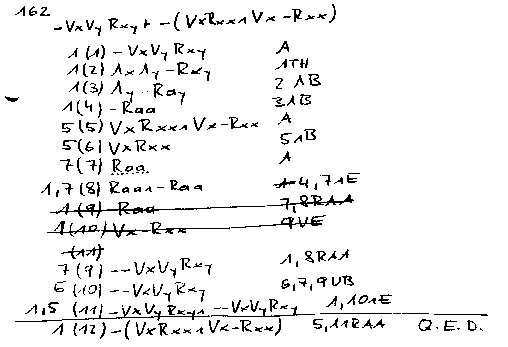 162
-VxVy Rxy ⊢ -(VxRxx ∧ Vx-Rxx)
1 (1) -VxVy Rxy A
1 (2) ΛxΛy-Rxy 1TH
1 (3) Λy-Ray 2 ΛB
1 (4) -Raa 3ΛB
5 (5) VxRxx ∧ Vx-Rxx A
5 (6) VxRxx 5ΛB
7 (7) Raa A
1,7 (8) Raa ∧ -Raa 4,7ΛE
1 (9) -Raa 7,8RAA
1 (10) Vx-Rxx 9VE
(11)
7 (9) --VxVyRxy 1,8RAA
6 (10) --VxVyRxy 6,7,9VB
1,5 (11) -VxVyRxy ∧ --VxVyRxy 1,10ΛE
1 (12) -(VxRxx ∧ Vx-Rxx) 5,11RAA Q.E.D.